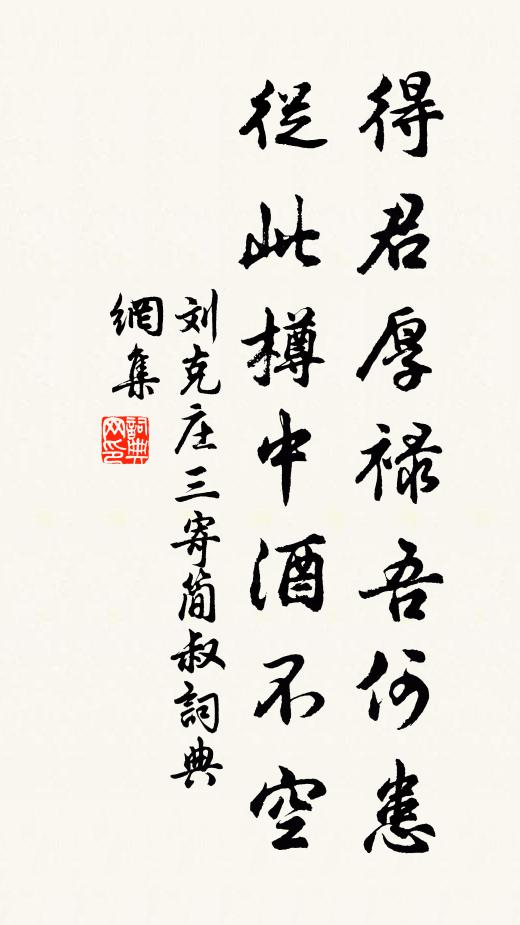 得君厚禄吾何患
從此樽中酒不空
刘克庄三寄简叔詞典
網集
詞典网印